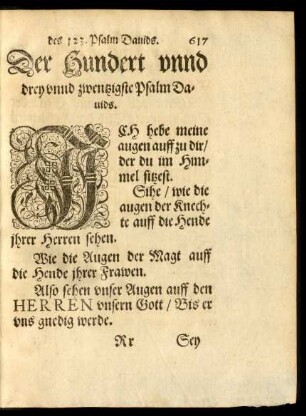 des 123. Psalm Dauids. 617
Der Hundert vnnd
drey vnnd zwentzigste Psalm Da-
uids.
ICH hebe meine
augen auff zu dir/
der du im Him-
mel sitzest.
Sihe / wie die
augen der Knech-
te auff die Hende
jhrer Herren sehen.
Wie die Augen der Magt auff
die Hende jhrer Frawen.
Also sehen vnser Augen auff den
HERREN vnsern Gott / Bis er
vns gnedig werde.
Rr Sey